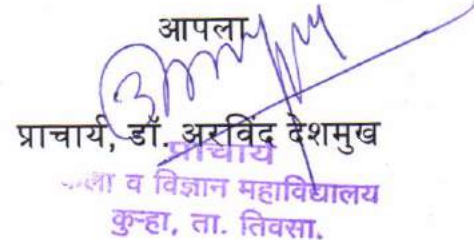 आपला
प्राचार्य, डॉ. अरविंद देशमुख
प्राचार्य
कला व विज्ञान महाविद्यालय
कुऱ्हा, ता. तिवसा.